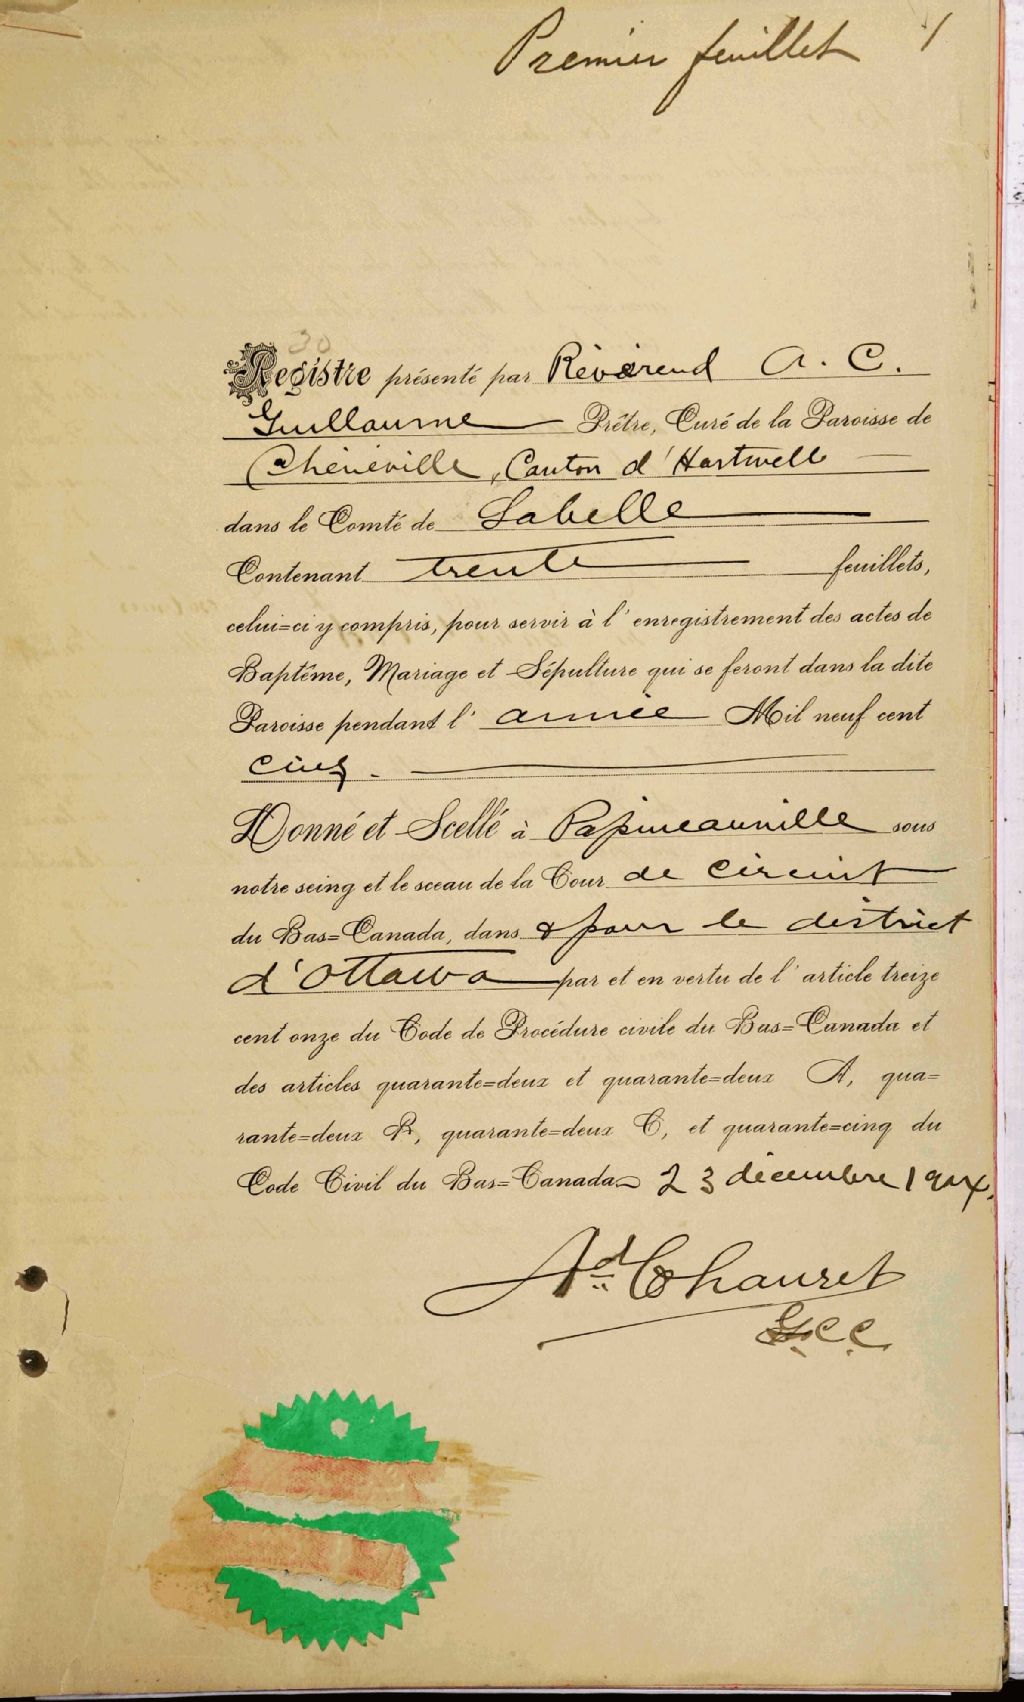 Premier feuillet 1
30
Registre présenté par Révérend A. C.
Guillaume Prêtre, Curé de la Paroisse de
Chénéville, Canton d'Hartwell
dans le Comté de Labelle
Contenant trente feuillets,
celui=ci y compris, pour servir à l'enregistrement des actes de
Baptême, Mariage et Sépulture qui se feront dans la dite
Paroisse pendant l'année Mil neuf cent
cinq.
Donné et Scellé à Papineauville sous
notre seing et le sceau de la Cour de circuit
du Bas=Canada, dans & pour le district
d'Ottawa par et en vertu de l'article treize
cent onze du Code de Procédure civile du Bas=Canada et
des articles quarante=deux et quarante=deux A, qua=
rante=deux B, quarante=deux C, et quarante=cinq du
Code Civil du Bas=Canada 23 décembre 1904.
Ad. Chauret
G.C.C.